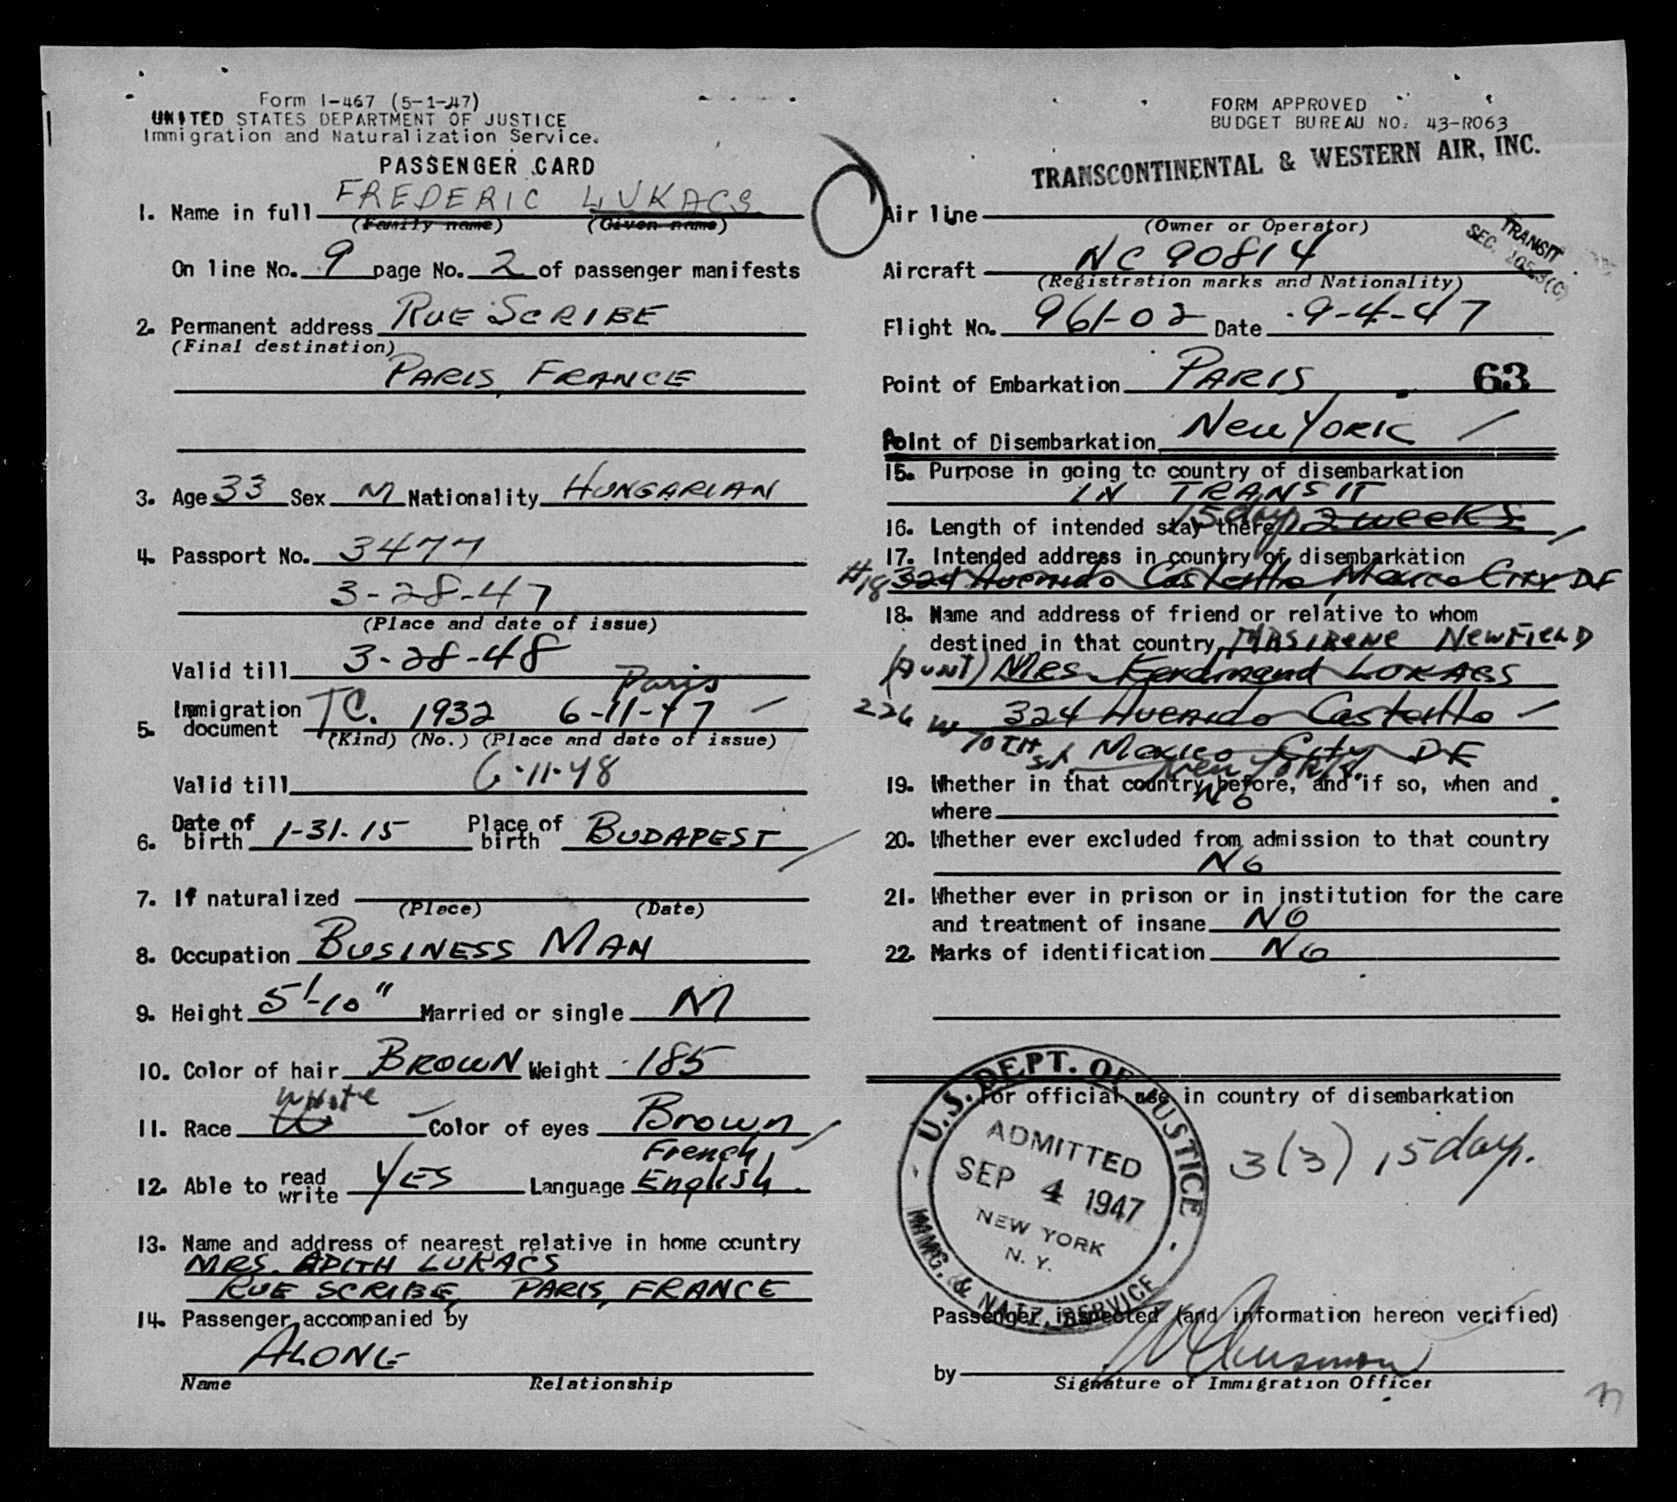 Form I-467 (5-1-47)
UNITED STATES DEPARTMENT OF JUSTICE
Immigration and Naturalization Service.
PASSENGER CARD
1. Name in full FREDERIC LUKACS
(Family name) (Given name)
On line No. 9 page No. 2 of passenger manifests
2. Permanent address RUE SCRIBE
(Final destination)
PARIS, FRANCE
3. Age 33 Sex M Nationality HUNGARIAN
4. Passport No. 3477
3-28-47
(Place and date of issue)
Valid till 3-28-48
Paris
5. Immigration document TC. 1932 6-11-47
(Kind) (No.) (Place and date of issue)
Valid till 6-11-48
6. Date of birth 1-31-15 Place of birth BUDAPEST
7. If naturalized
(Place) (Date)
8. Occupation BUSINESS MAN
9. Height 5'-10" Married or single M
10. Color of hair BROWN Weight 185
White
11. Race W Color of eyes Brown
French,
12. Able to read write YES Language English
13. Name and address of nearest relative in home country
MRS. EDITH LUKACS
RUE SCRIBE, PARIS, FRANCE
14. Passenger accompanied by
ALONE
Name Relationship
FORM APPROVED
BUDGET BUREAU NO. 43-R063
TRANSCONTINENTAL & WESTERN AIR, INC.
Air line
(Owner or Operator)
TRANSIT
SEC.
Aircraft NC 90814
(Registration marks and Nationality)
Flight No. 961-02 Date 9-4-47
Point of Embarkation PARIS 63
Point of Disembarkation New York
15. Purpose in going to country of disembarkation
IN TRANSIT
16. Length of intended stay there 15 days 2 weeks
17. Intended address in country of disembarkation
#18 324 Avenido Castello Mexico City DF
18. Name and address of friend or relative to whom
destined in that country MRS IRENE NEWFIELD
(AUNT) MRS Ferdinand LUKACS
226 W 324 Avenido Castello
70TH St. Mexico City DF
New York
19. Whether in that country before, and if so, when and
where NO
20. Whether ever excluded from admission to that country
NO
21. Whether ever in prison or in institution for the care
and treatment of insane NO
22. Marks of identification NO
For official use in country of disembarkation
U.S. DEPT. OF JUSTICE
ADMITTED
SEP 4 1947
NEW YORK
N. Y.
IMMIG. & NATZ. SERVICE
3(3) 15 days.
Passenger inspected (and information hereon verified)
by
Signature of Immigration Officer